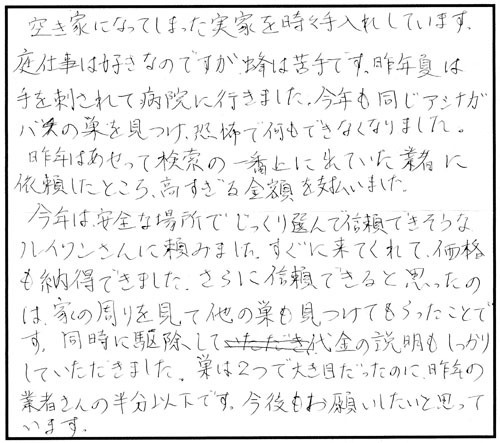 空き家になってしまった実家を時々手入れしています。
庭仕事は好きなのですが、蜂は苦手です。昨年夏は
手を刺されて病院に行きました。今年も同じアシナガ
バチの巣を見つけ、恐怖で何もできなくなりました。
昨年はあせって検索の一番上に出ていた業者に
依頼したところ、高すぎる金額を支払いました。
今年は、安全な場所でじっくり選んで信頼できそうな
ハイワンさんに頼みました。すぐに来てくれて、価格
も納得できました。さらに信頼できると思ったの
は、家の周りを見て他の巣も見つけてもらったことで
す。同時に駆除していただき代金の説明もしっかり
していただきました。巣は2つで大き目だったのに、昨年の
業者さんの半分以下です。今後もお願いしたいと思って
います。